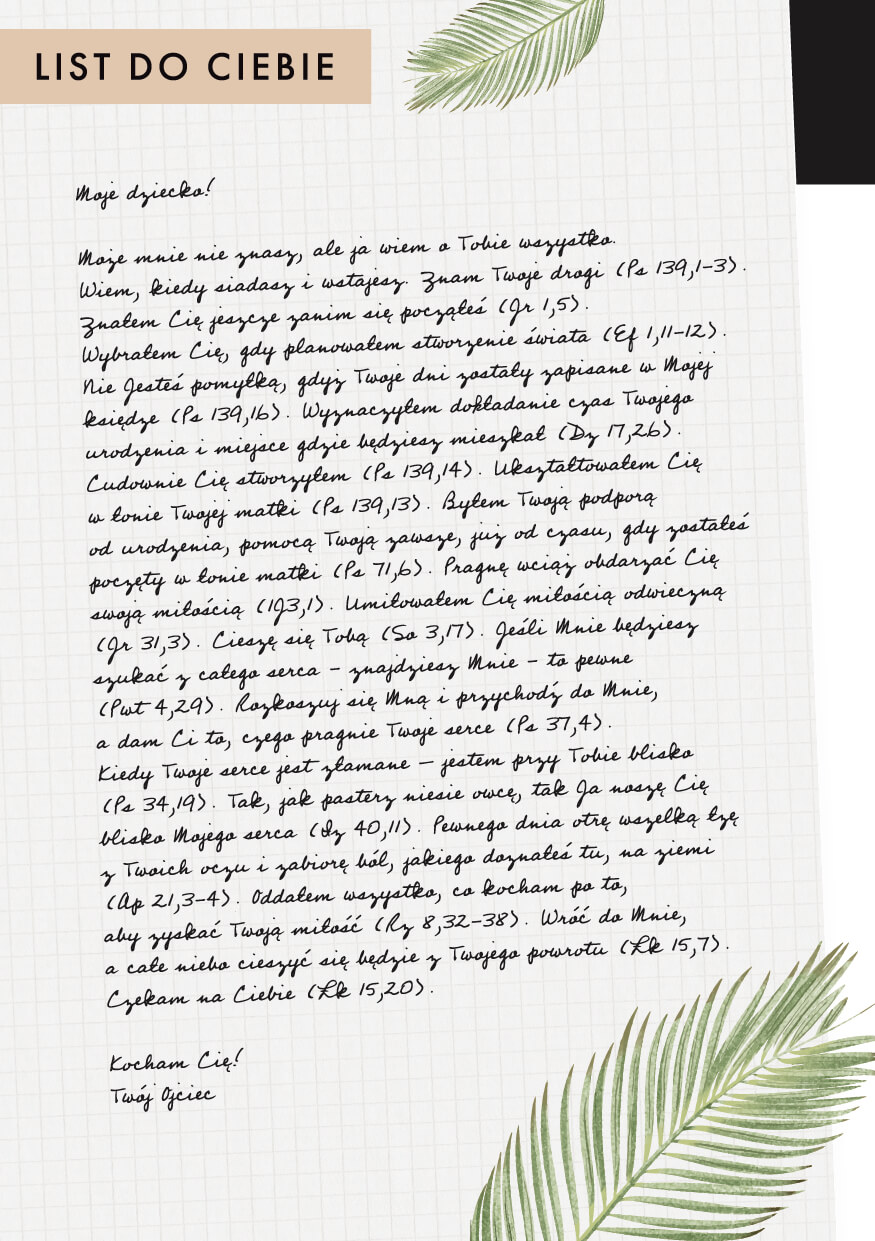 LIST DO CIEBIE
Moje dziecko!
Może mnie nie znasz, ale ja wiem o Tobie wszystko.
Wiem, kiedy siadasz i wstajesz. Znam Twoje drogi (Ps 139,1-3).
Znałem Cię jeszcze zanim się począłeś (Jr 1,5).
Wybrałem Cię, gdy planowałem stworzenie świata (Ef 1,11-12).
Nie Jesteś pomyłką, gdyż Twoje dni zostały zapisane w Mojej
księdze (Ps 139,16). Wyznaczyłem dokładanie czas Twojego
urodzenia i miejsce gdzie będziesz mieszkał (Dz 17,26).
Cudownie Cię stworzyłem (Ps 139,14). Ukształtowałem Cię
w łonie Twojej matki (Ps 139,13). Byłem Twoją podporą
od urodzenia, pomocą Twoją zawsze, już od czasu, gdy zostałeś
poczęty w łonie matki (Ps 71,6). Pragnę wciąż obdarzać Cię
swoją miłością (1J3,1). Umiłowałem Cię miłością odwieczną
(Jr 31,3). Cieszę się Tobą (So 3,17). Jeśli Mnie będziesz
szukać z całego serca – znajdziesz Mnie – to pewne
(Pwt 4,29). Rozkoszuj się Mną i przychodź do Mnie,
a dam Ci to, czego pragnie Twoje serce (Ps 37,4).
Kiedy Twoje serce jest złamane – jestem przy Tobie blisko
(Ps 34,19). Tak, jak pasterz niesie owcę, tak Ja noszę Cię
blisko Mojego serca (Iz 40,11). Pewnego dnia otrę wszelką łzę
z Twoich oczu i zabiorę ból, jakiego doznałeś tu, na ziemi
(Ap 21,3-4). Oddałem wszystko, co kocham po to,
aby zyskać Twoją miłość (Rz 8,32-38). Wróć do Mnie,
a całe niebo cieszyć się będzie z Twojego powrotu (Łk 15,7).
Czekam na Ciebie (Łk 15,20).
Kocham Cię!
Twój Ojciec